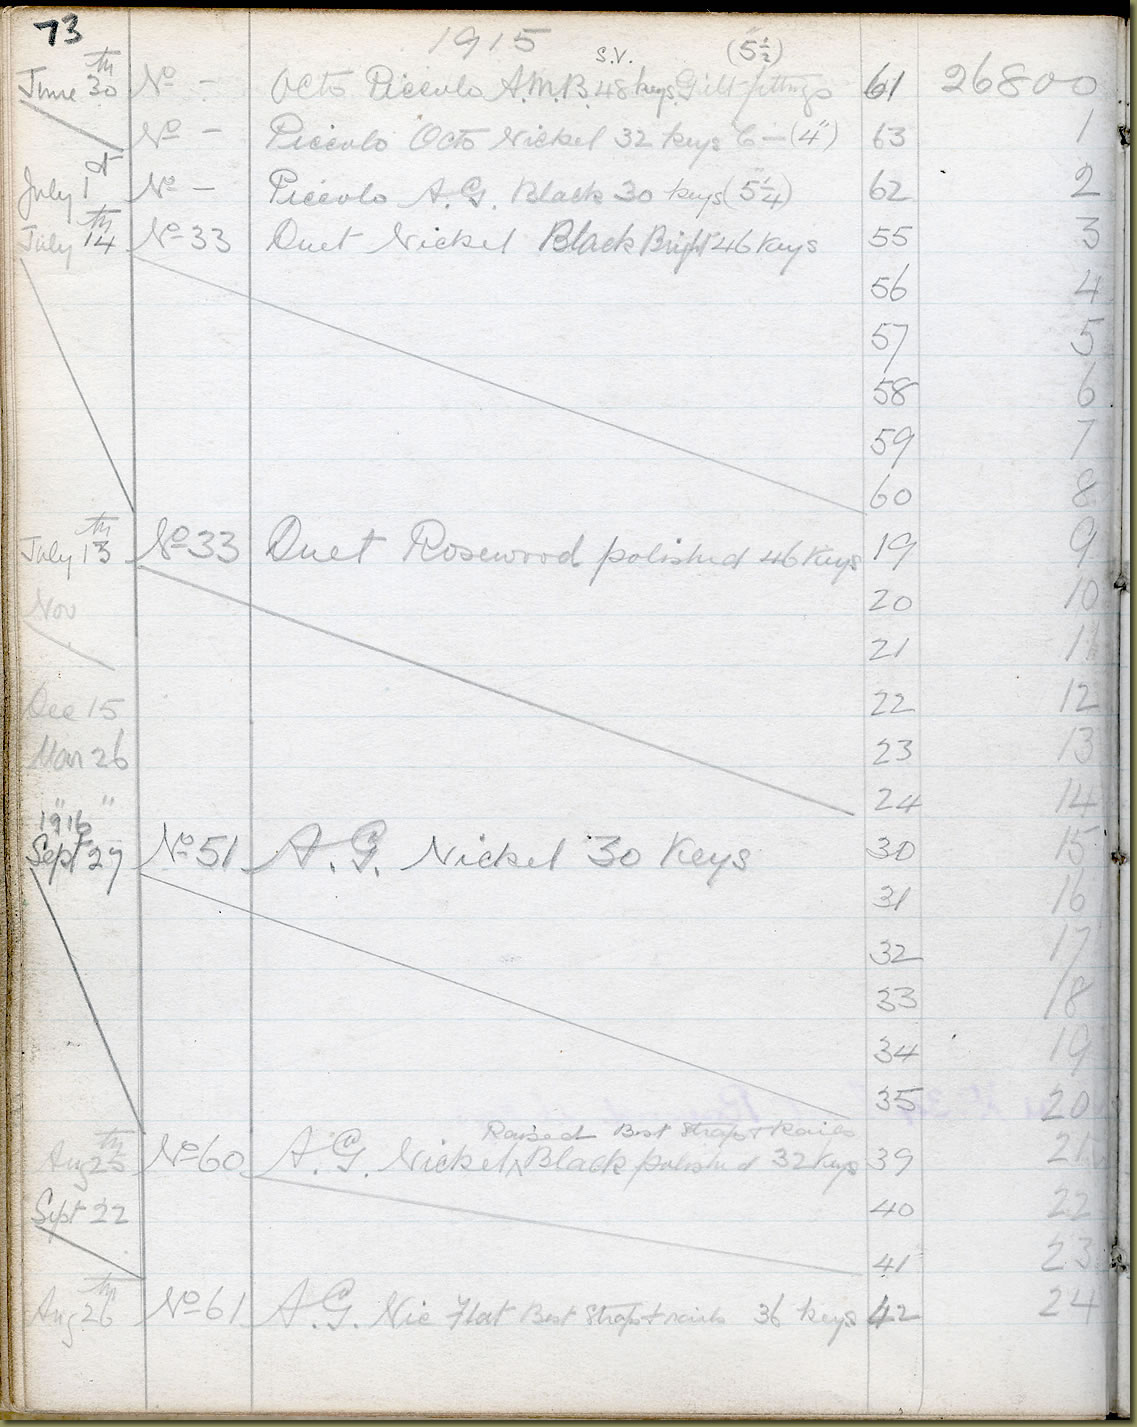 73
1915
June 30th No - Octo Piccolo A.M.B. 48 keys Gilt fittings S.V. (5½) 61 26800
No - Piccolo Octo Nickel 32 keys C — (4") 63 1
July 1st No - Piccolo A.G. Black 30 keys (5¼) 62 2
July 14th No 33 Duet Nickel Black Bright 46 keys 55 3
56 4
57 5
58 6
59 7
60 8
July 13th No 33 Duet Rosewood polished 46 Keys 19 9
Nov 20 10
21 11
Dec 15 22 12
Mar 26 23 13
24 14
1916
Sept 27 No 51 A.G. Nickel 30 Keys 30 15
31 16
32 17
33 18
34 19
35 20
Raised Best Strap +
Aug 25th No 60 A.G. Nickel Black polished 32 keys 39 21
Sept 22 40 22
41 23
Aug 26th No 61 A.G. Nic Flat Best Strap + 36 keys 42 24